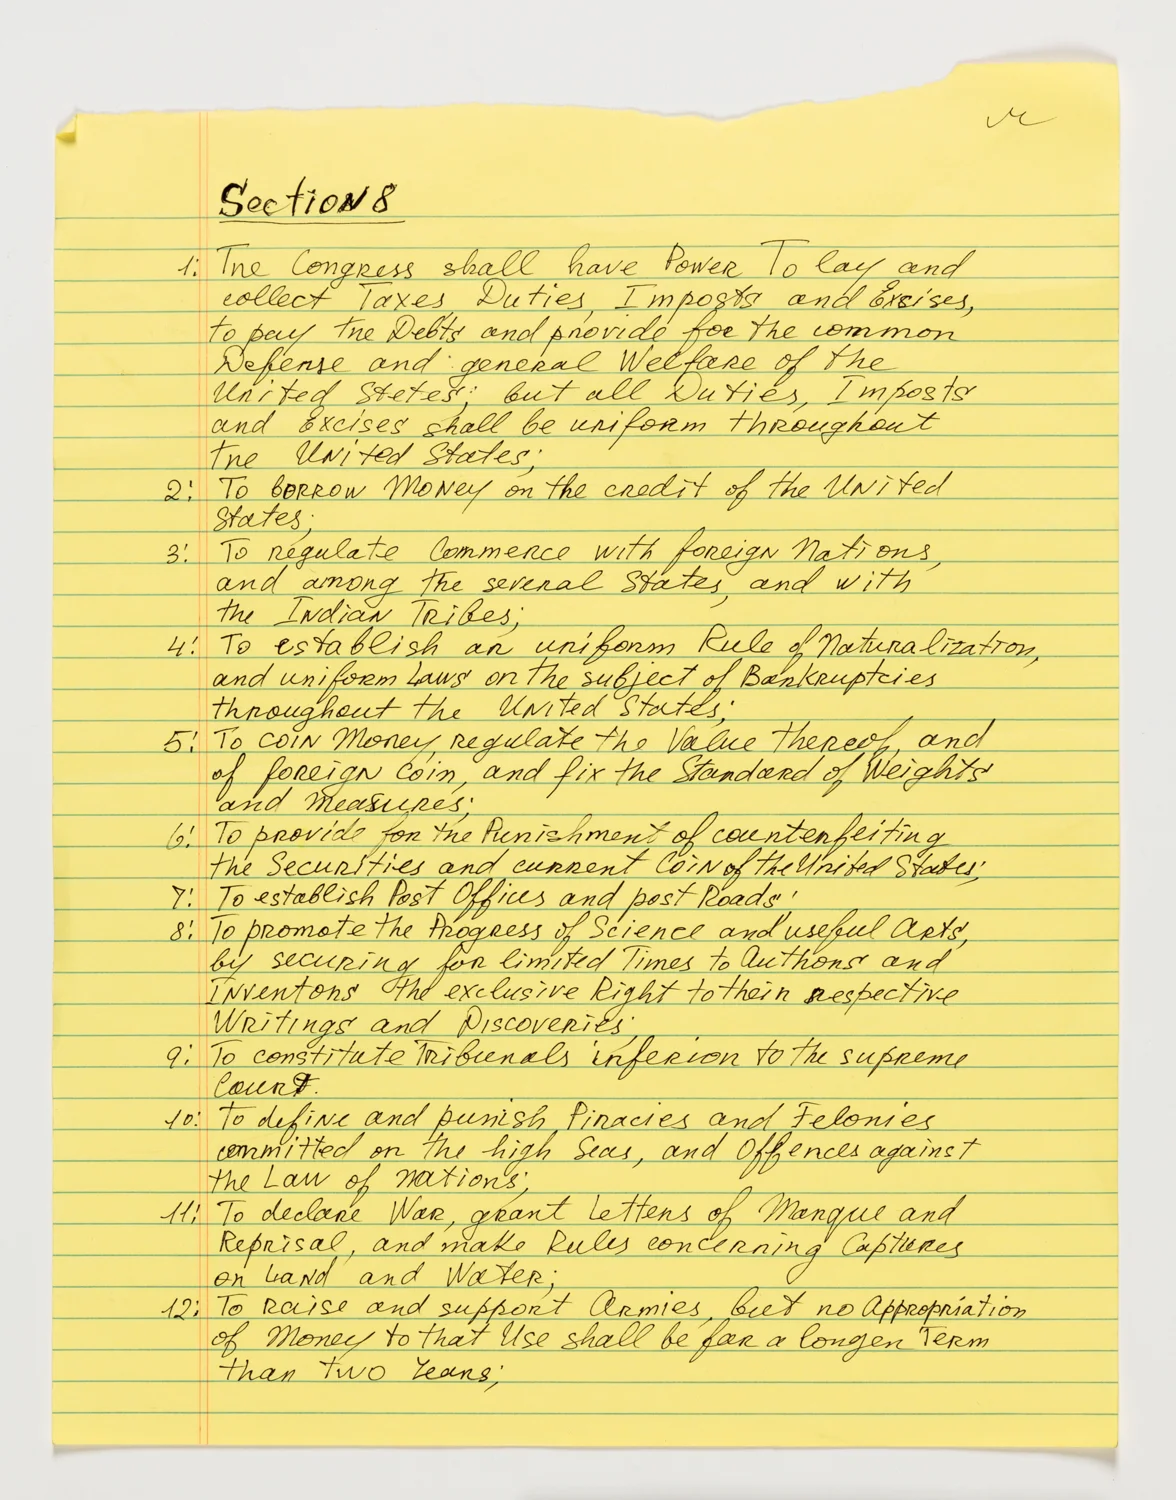 Section 8
1: The Congress shall have Power To lay and
collect Taxes Duties, Imposts and Excises,
to pay the Debts and provide for the common
Defense and general Welfare of the
United Stetes; but all Duties, Imposts
and Excises shall be uniform throughout
the United States;
2: To borrow Money on the credit of the United
States;
3: To regulate Commerce with foreign Nations,
and among the several States, and with
the Indian Tribes;
4: To establish an uniform Rule of Naturalization,
and uniform Laws on the subject of Bankruptcies
throughout the United States;
5: To coin Money, regulate the Value thereof, and
of foreign Coin, and fix the Standard of Weights
and Measures;
6: To provide for the Punishment of counterfeiting
the Securities and current Coin of the United States;
7: To establish Post Offices and post Roads;
8: To promote the Progress of Science and useful Arts,
by securing for limited Times to Authors and
Inventors the exclusive Right to their respective
Writings and Discoveries;
9: To constitute Tribunals inferior to the supreme
Court.
10: To define and punish Piracies and Felonies
committed on the high Seas, and Offences against
the Law of Nations;
11: To declare War, grant Letters of Marque and
Reprisal, and make Rules concerning Captures
on Land and Water;
12: To raise and support Armies, but no Appropriation
of Money to that Use shall be for a longer Term
than two Years;